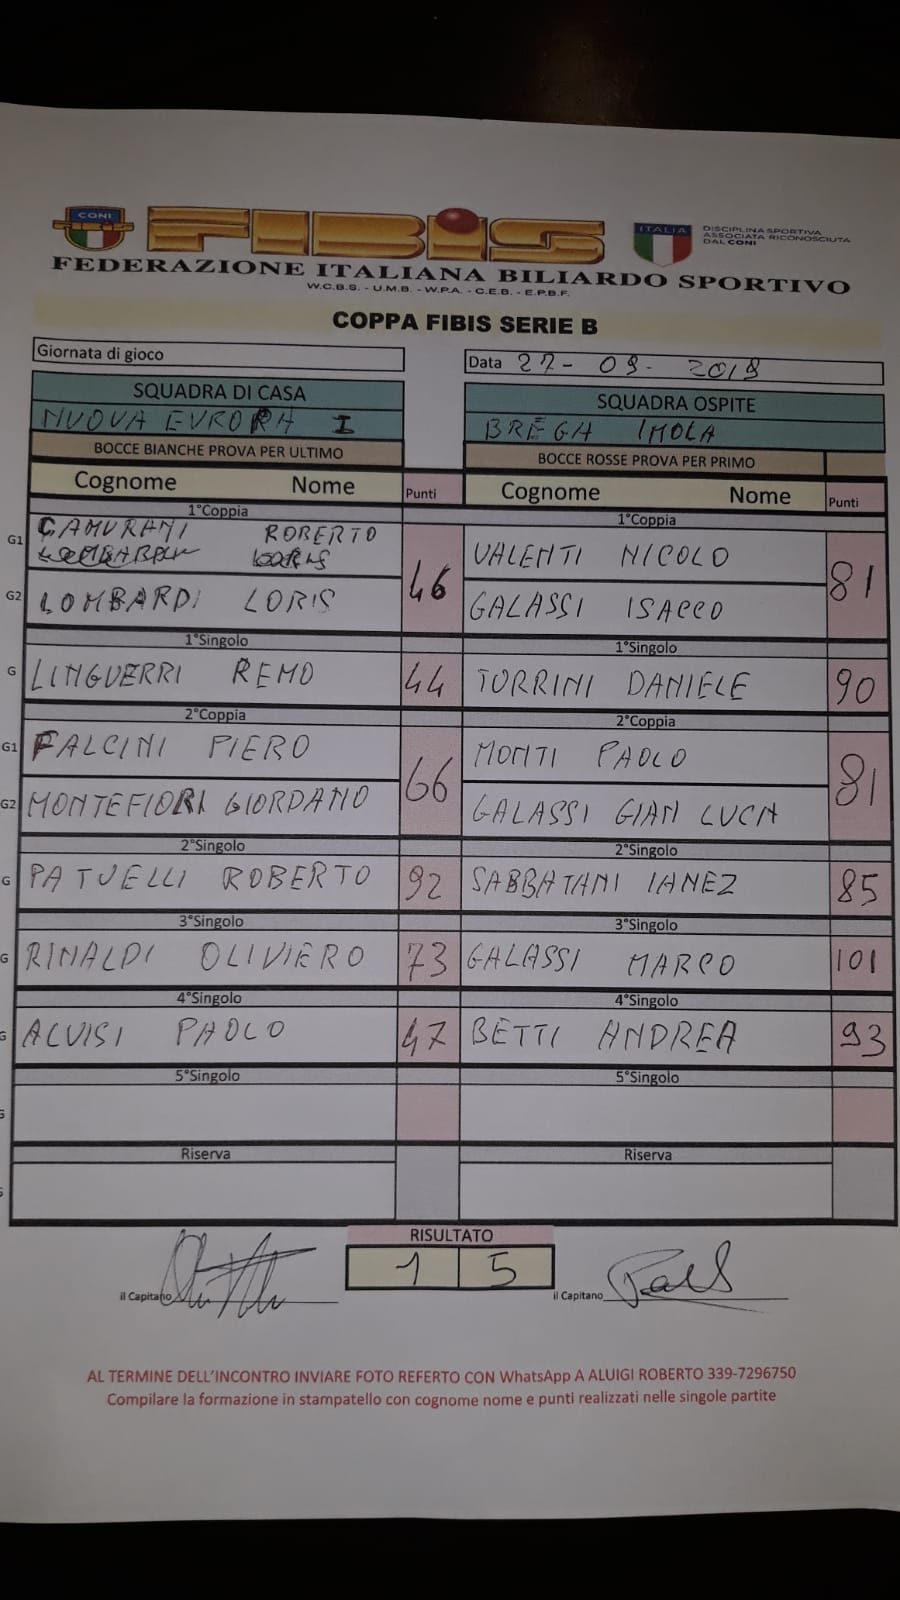 CONI
FIBIS
ITALIA
DISCIPLINA SPORTIVA
ASSOCIATA RICONOSCIUTA
DAL CONI
FEDERAZIONE ITALIANA BILIARDO SPORTIVO
W.C.B.S. - U.M.B. - W.P.A. - C.E.B. - E.P.B.F.
COPPA FIBIS SERIE B
Giornata di gioco
Data 27-09-2019
SQUADRA DI CASA
SQUADRA OSPITE
NUOVA EVRORA I
BREGA IMOLA
BOCCE BIANCHE PROVA PER ULTIMO
BOCCE ROSSE PROVA PER PRIMO
Cognome Nome Punti Cognome Nome Punti
1°Coppia 1°Coppia
G1 CAMURANI ROBERTO 46 VALENTI NICOLO 81
G2 LOMBARDI LORIS GALASSI ISACCO
1°Singolo 1°Singolo
G LINGUERRI REMO 44 TORRINI DANIELE 90
2°Coppia 2°Coppia
G1 FALCINI PIERO 66 MONTI PAOLO 81
G2 MONTEFIORI GIORDANO GALASSI GIAN LUCA
2°Singolo 2°Singolo
G PATUELLI ROBERTO 92 SABBATANI IANEZ 85
3°Singolo 3°Singolo
G RINALDI OLIVIERO 73 GALASSI MARCO 101
4°Singolo 4°Singolo
G ALVISI PAOLO 47 BETTI ANDREA 93
5°Singolo 5°Singolo
G
Riserva Riserva
RISULTATO
1 5
il Capitano il Capitano
AL TERMINE DELL'INCONTRO INVIARE FOTO REFERTO CON WhatsApp A ALUIGI ROBERTO 339-7296750
Compilare la formazione in stampatello con cognome nome e punti realizzati nelle singole partite